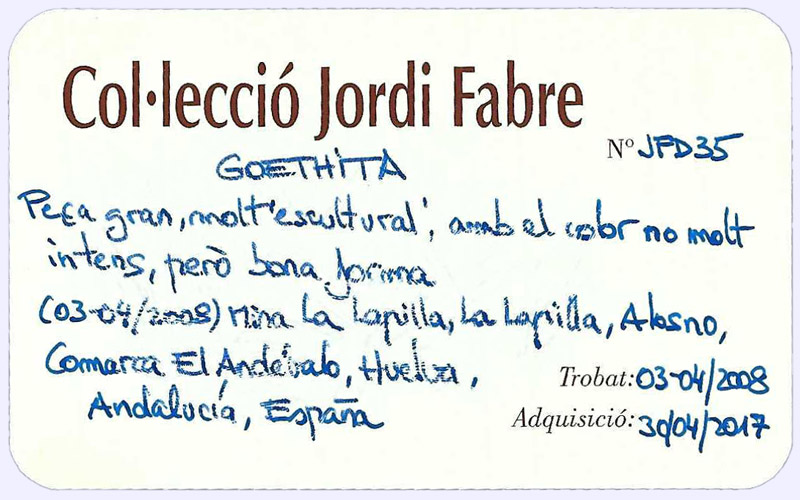 Col·lecció Jordi Fabre
Nº JFD35
GOETHITA
Peça gran, molt 'escultural', amb el color no molt
intens, però bona forma
(03-04/2008) Mina La Lapilla, La Lapilla, Alosno,
Comarca El Andévalo, Huelva,
Trobat: 03-04/2008
Andalucía, España
Adquisició: 30/04/2017